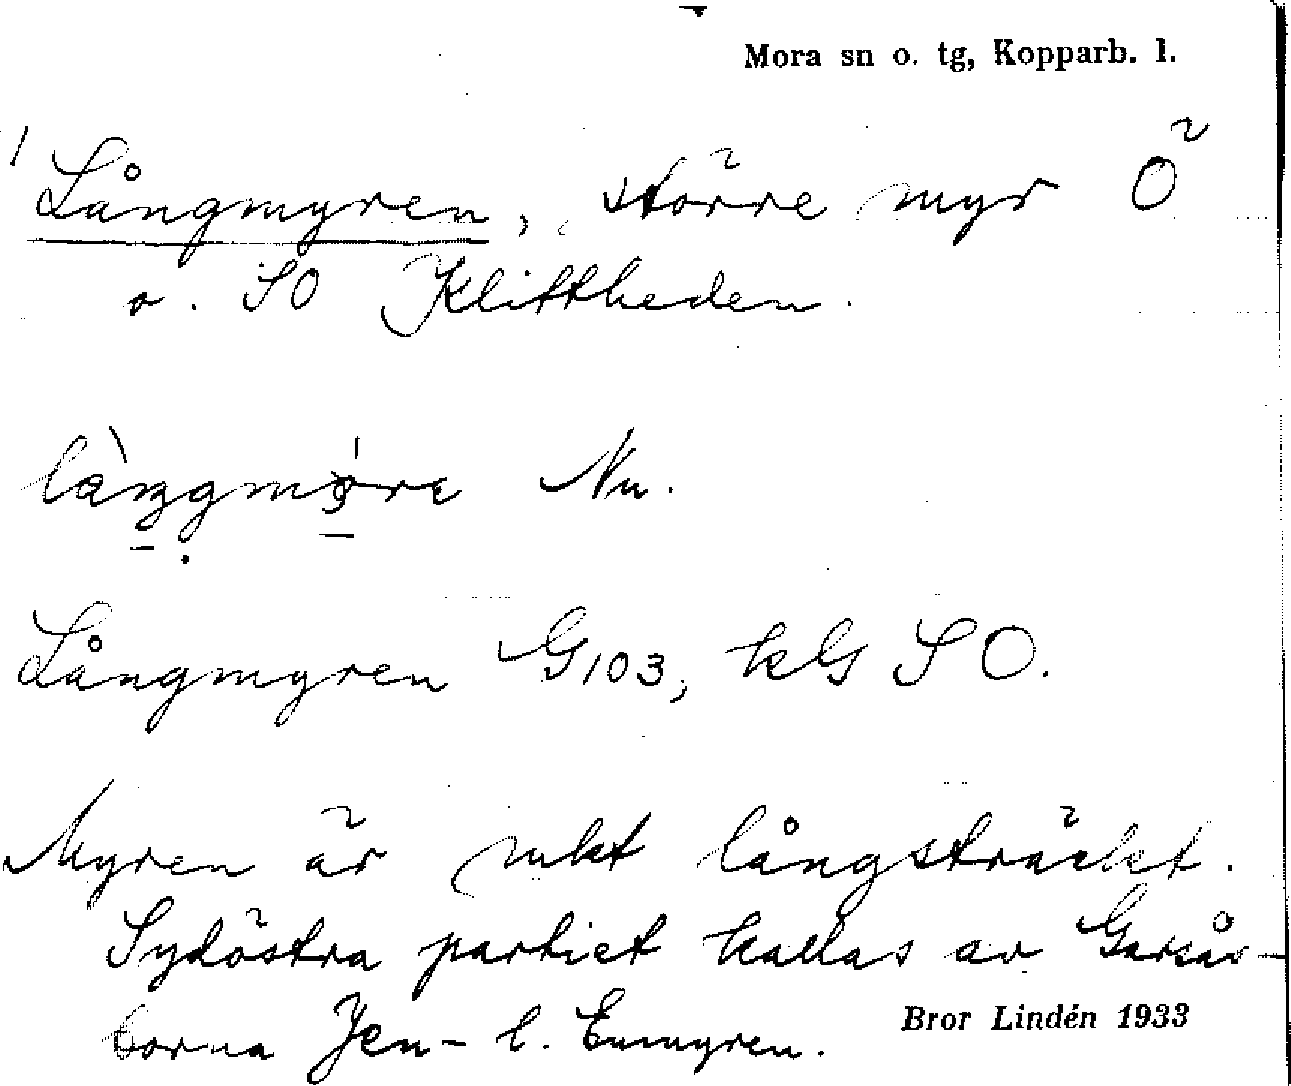 Mora sn o. tg, Kopparb. l.
Långmyren, större myr Ö
o. SO Klittheden.
Nu.
Långmyren G103, kG SO.
Myren är rakt långsträckt.
Sydöstra partiet kallas av Garsås-
borna Jen- l. Enmyren.
Bror Lindén 1933